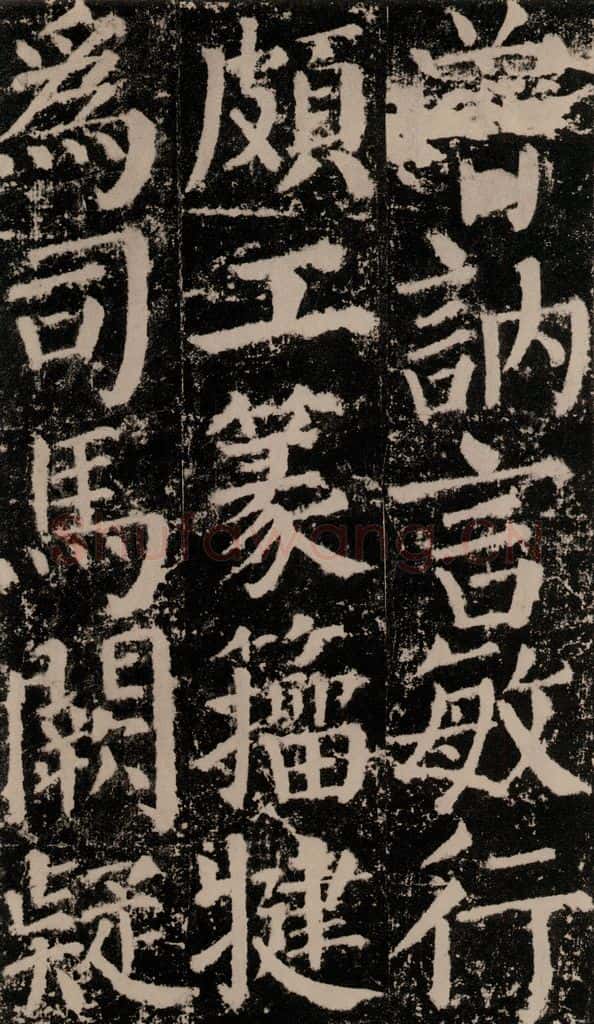 曾訥言敏行
頗工篆籀犍
為司馬闕疑
Shufawang.CN